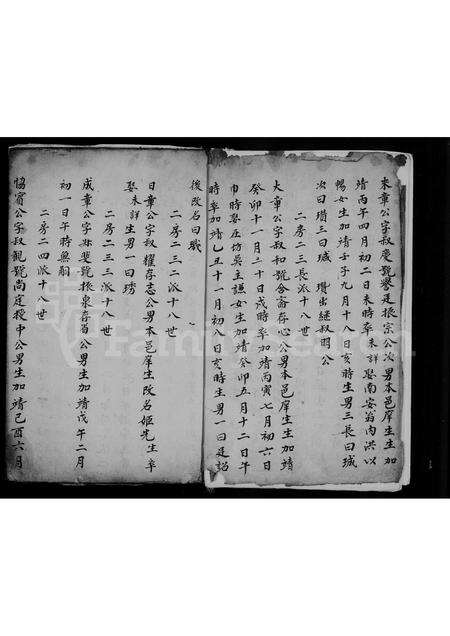 來章公字叔慶號擧廷振宗公次男本邑庠生生加
靖丙午四月初二日未時卒未詳娶南安翁內洪以
暢女生加靖壬子九月十八日亥時生男三長曰瑊
次曰瓚三曰瑊 瓚出繼叔明公
二房二三長派十八世
大章公字叔和號含齋存心公男本邑庠生生加靖
癸卯十一月三十日戌時卒加靖丙寅七月初六日
巾時娶庄坊吳主謙女生加靖癸卯五月十二日午
時卒加靖乙丑十一月初八日亥時生男一曰廷詔
後改名曰職
二房二三二派十八世
日章公字叔耀存志公男本邑庠生改名姬先生卒
娶未詳生男一曰琇
二房二三三派十八世
成章公字叔斐號振東存省公男生加靖戊午二月
初一日午時無嗣
二房二四派十八世
恊賓公字叔觀號尚庭樫中公男生加靖己酉六月
FamilySearch